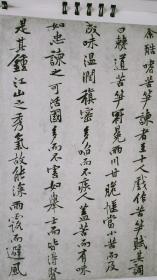 余酷嗜苦笋諫者至十人戲作苦笋賦其詞
曰僰道苦笋冠冕兩川甘脆愜當小苦而反
成味温潤稹密多啗而不疾人蓋苦而有味
如忠諫之可活國多而不害如舉士而皆得賢
是其鍾江山之秀氣故能深雨露而避風